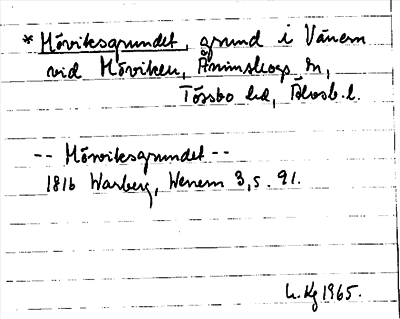 * Höviksgrundet, grund i Vänern
vid Höviken, Ånimskogs sn,
Tössbo hd, Älvsb. l.
-- Hörviksgrundet --
1816 Warberg, Wenern 3, s. 91.
1965.